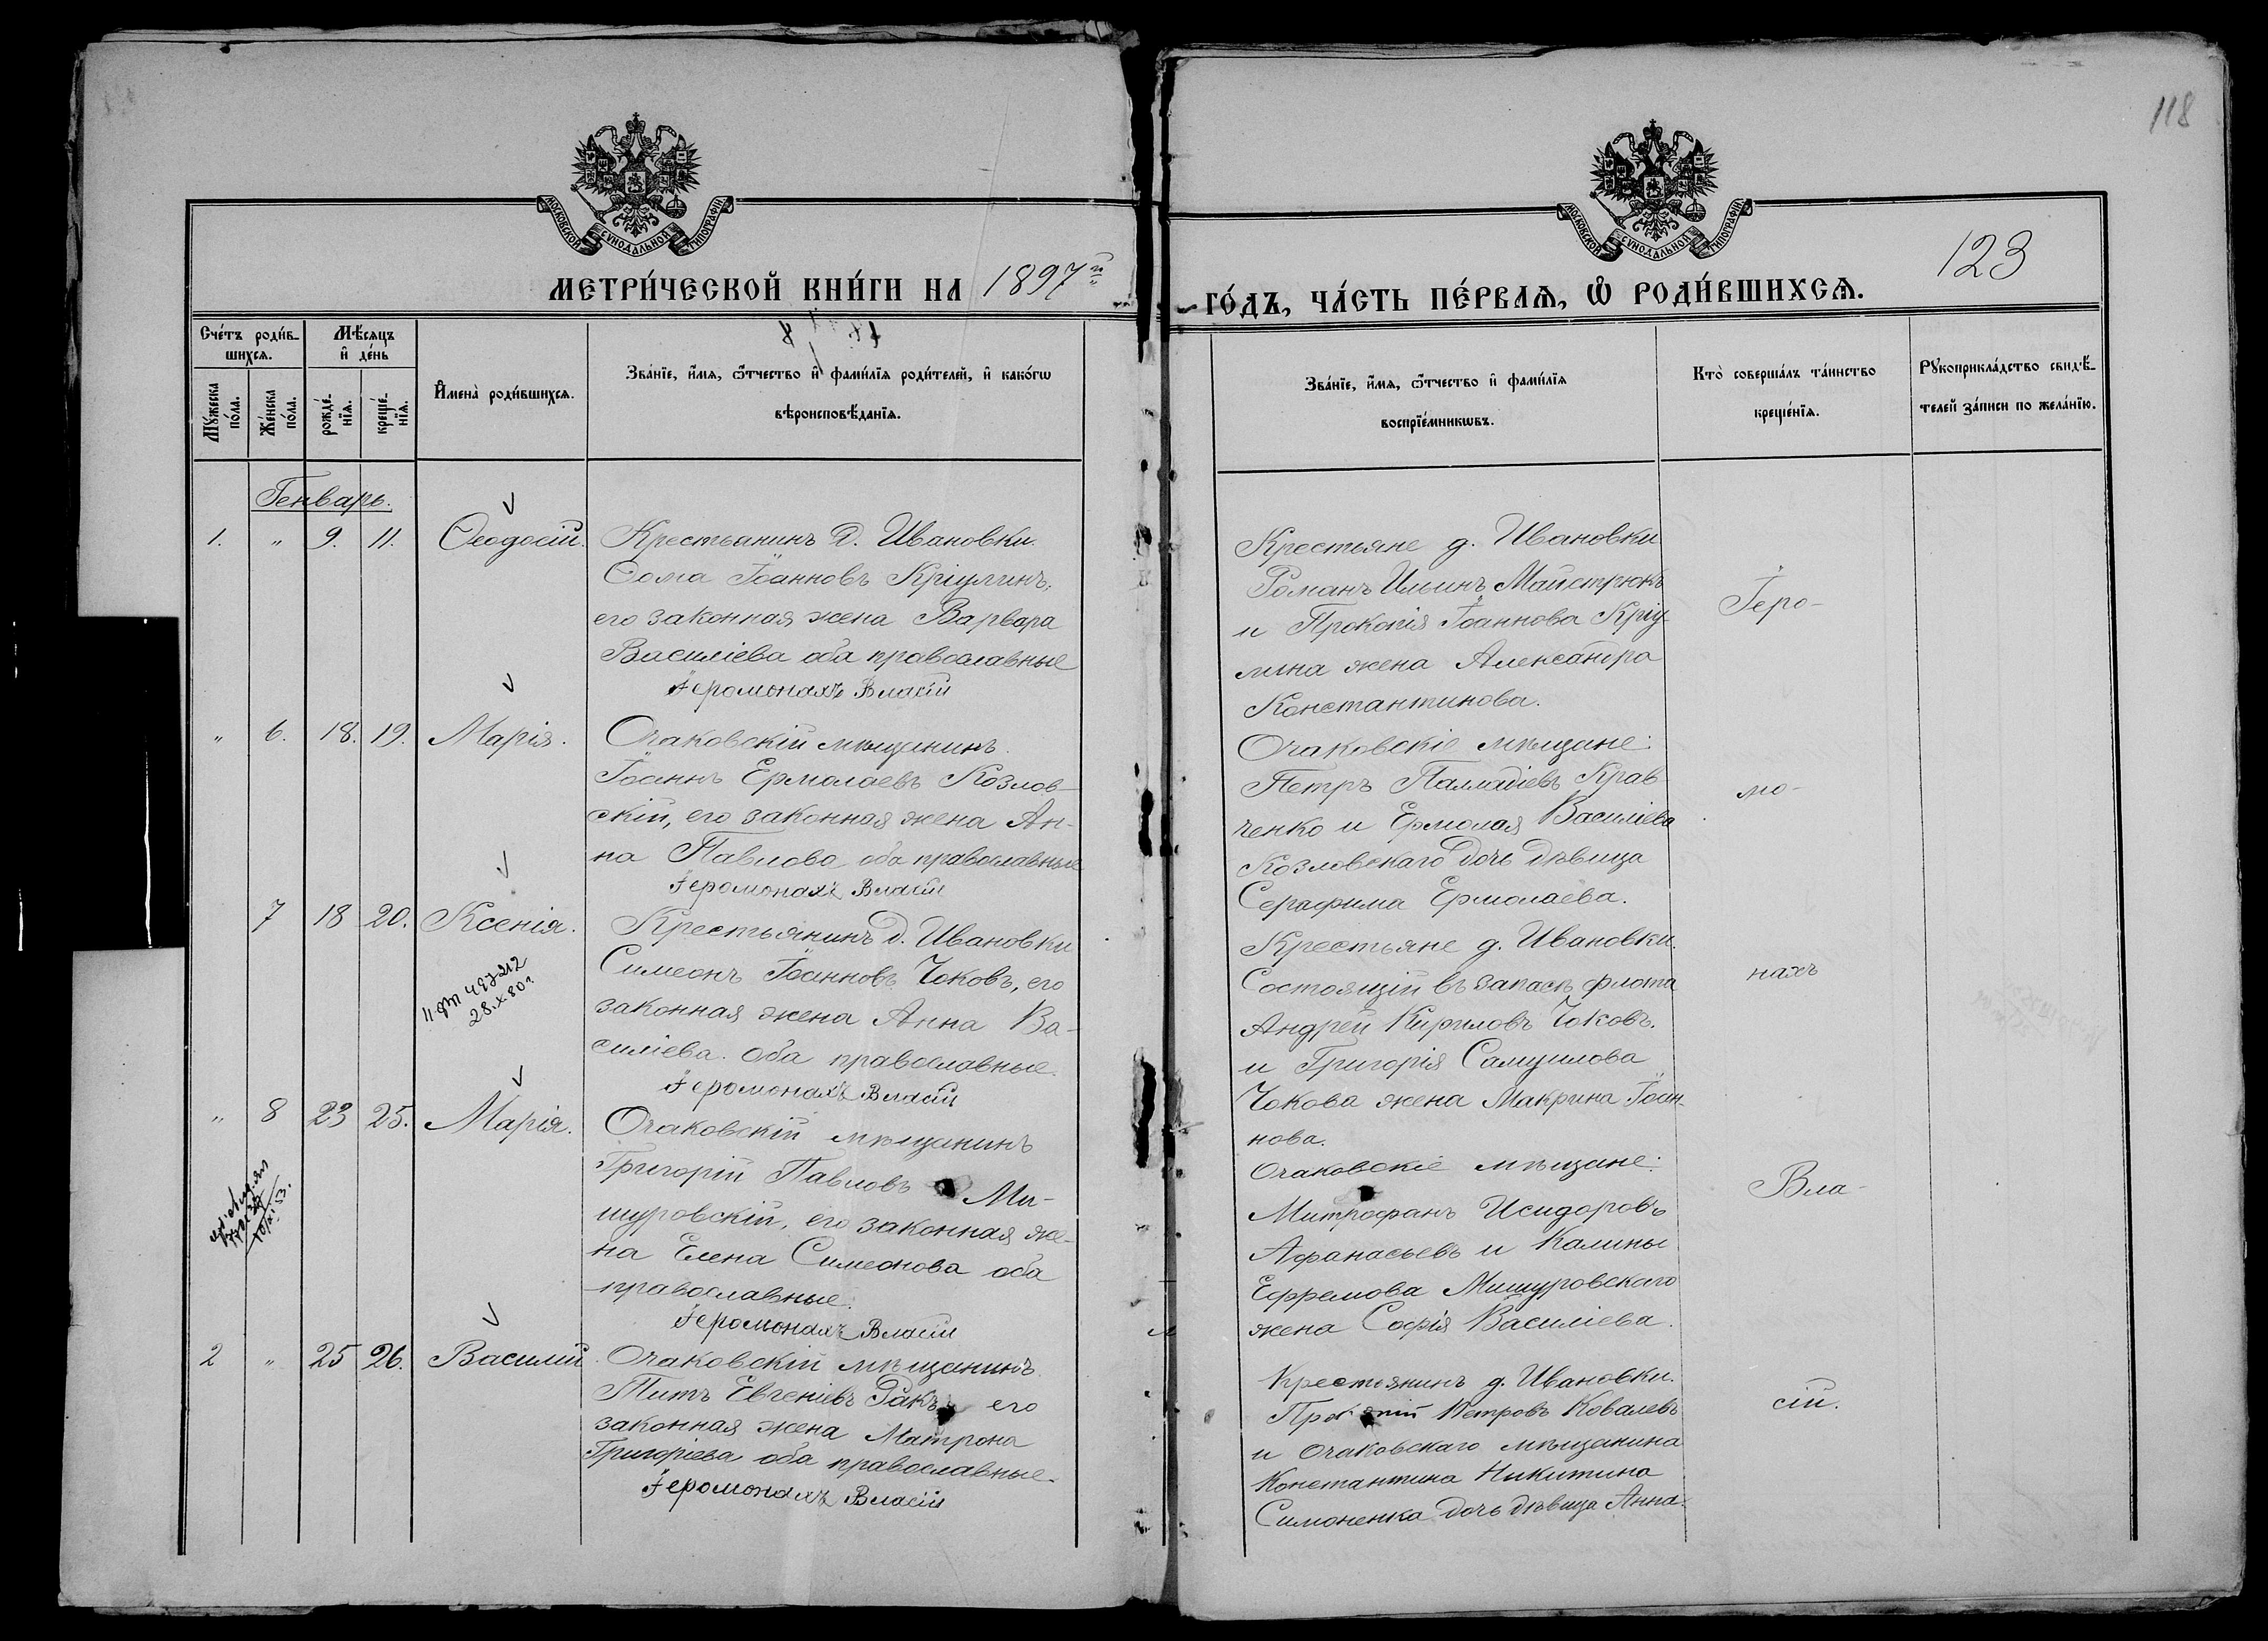 118
МОСКОВСКОЙ СУНОДАЛЬНОЙ ТИПОГРАФІИ
МОСКОВСКОЙ СУНОДАЛЬНОЙ ТИПОГРАФІИ
123
МЕТРИ́ЧЕСКОЙ КНИ́ГИ НА 1897й
ГО́ДЪ, ЧА́СТЬ ПЕ́РВАѦ, Ѡ҆ РОДИ́ВШИХСѦ.
Сче́тъ роди́в-
шихсѧ.
Мѣ́сѧцъ
и҆ де́нь
Мꙋ́жеска
по́ла.
Же́нска
по́ла.
рожде́-
нїѧ.
креще́-
нїѧ.
И҆мена̀ роди́вшихсѧ.
Зва́нїе, и҆́мѧ, ѻ҆́тчество и҆ фами́лїѧ роди́телей, и҆ како́гѡ
вѣроисповѣ́данїѧ.
Зва́нїе, и҆́мѧ, ѻ҆́тчество и҆ фами́лїѧ
воспрїе́мникѡвъ.
Кто̀ соверша́лъ та́инство
креще́нїѧ.
Рꙋкоприкла́дство свидѣ́-
телей за́писи по жела́нїю.
Генварь.
1. " 9. 11. Ѳеодосій.
Крестьанинъ д. Ивановки
Ѳома Іоанновъ Кріулинъ,
его законная жена Варвара
Василіева оба православные
Іеромонахъ Власій
Крестьяне д. Ивановки
Романъ Ильинъ Майстрюкъ
и Прокопія Іоаннова Кріу-
лина жена Александра
Константинова.
Іеро-
" 6. 18. 19. Марія.
Очаковскій мѣщанинъ
Іоаннъ Ермолаевъ Козлов-
скій, его законная жена Ан-
на Павлова оба православные
Іеромонахъ Власій
Очаковскіе мѣщане:
Петръ Палладіевъ Крав-
ченко и Ермолая Василіева
Козловскаго дочь дѣвица
Серафима Ермолаева.
мо-
7 18 20. Ксенія.
28.X.80г.
Крестьянинъ д. Ивановки
Симеонъ Іоанновъ Чоковъ, его
законная жена Анна Ва-
силіева. Оба православные.
Іеромонахъ Власій
Крестьяне д. Ивановки.
Состоящій въ запасѣ флота
Андрей Кириловъ Чоковъ.
и Григорія Самуилова
Чокова жена Макрина Іоан-
нова.
нахъ
" 8 23 25. Марія.
Очаковскій мѣщанинъ
Григорій Павловъ Ми-
шуровскій, его законная же-
на Елена Симеонова оба
православные.
Іеромонахъ Власій
Очаковскіе мѣщане:
Митрофанъ Исидоровъ
Афанасьевъ и Калины
Ефремова Мишуровскаго
жена Софія Василіева.
Вла-
2 " 25 26. Василій.
Очаковскій мѣщанинъ
Титъ Евгеніевъ Ракъ, его
законная жена Матрона
Григоріева оба православные.
Іеромонахъ Власій
Крестьянинъ д. Ивановки.
Петровъ Ковалевъ
и Очаковскаго мѣщанина
Константина Никитина
Симоненка дочь дѣвица Анна.
сій.